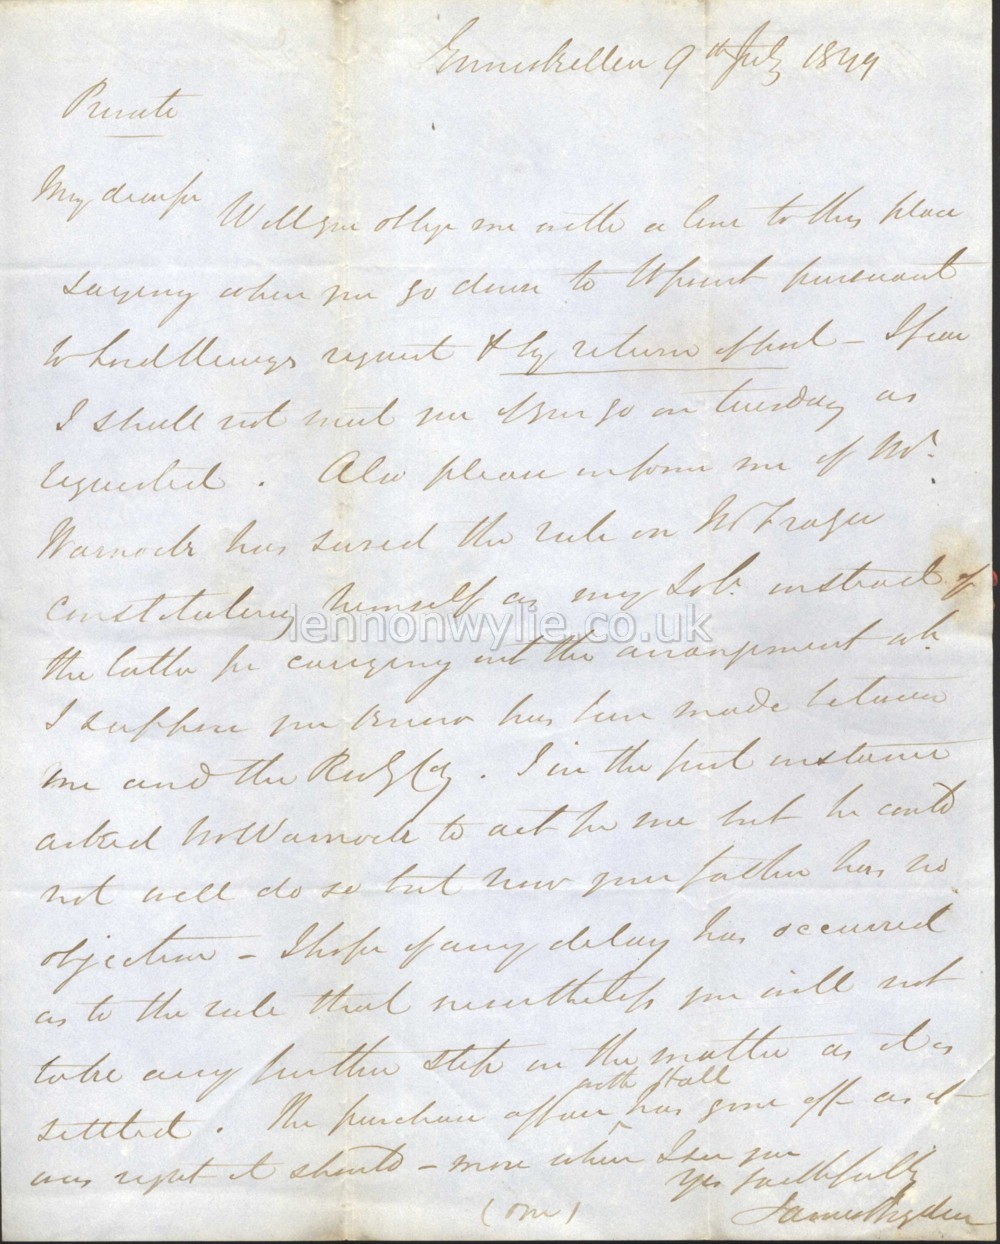 Enniskillen 9th July 1849
Private
My dear Sir
Will you oblige me with a line to this place
saying when you go down to pursuant
to Lord request & by return of post – I fear
I shall not meet you if you go on tuesday as
requested. Also please inform me if Mr.
Warnock has served the rule on Mr Frazer
constituting himself as my Solr. instead of
the latter for carrying out the arrangement wh.
I suppose you know has been made between
me and the . I in the first instance
asked Mr Warnock to act for me but he could
not well do so but now your father has no
objection – I hope if any delay has occurred
as to the rule that nevertheless you will not
take any further step in the matter as it is
with Stall
settled. The purchase affair has gone off as it
was right it should – more when I see you
Yrs faithfully
James
lennonwylie.co.uk